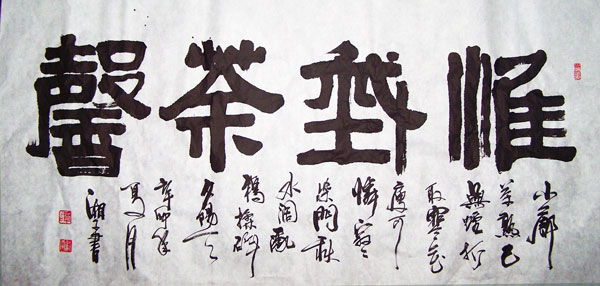 惟茶馨
小廊
茶熟已
無煙折
取寒花
瘦可
憐寂々
柴門秋
水闊亂
鴉揉碎
夕陽天
辛卯年
夏月
書